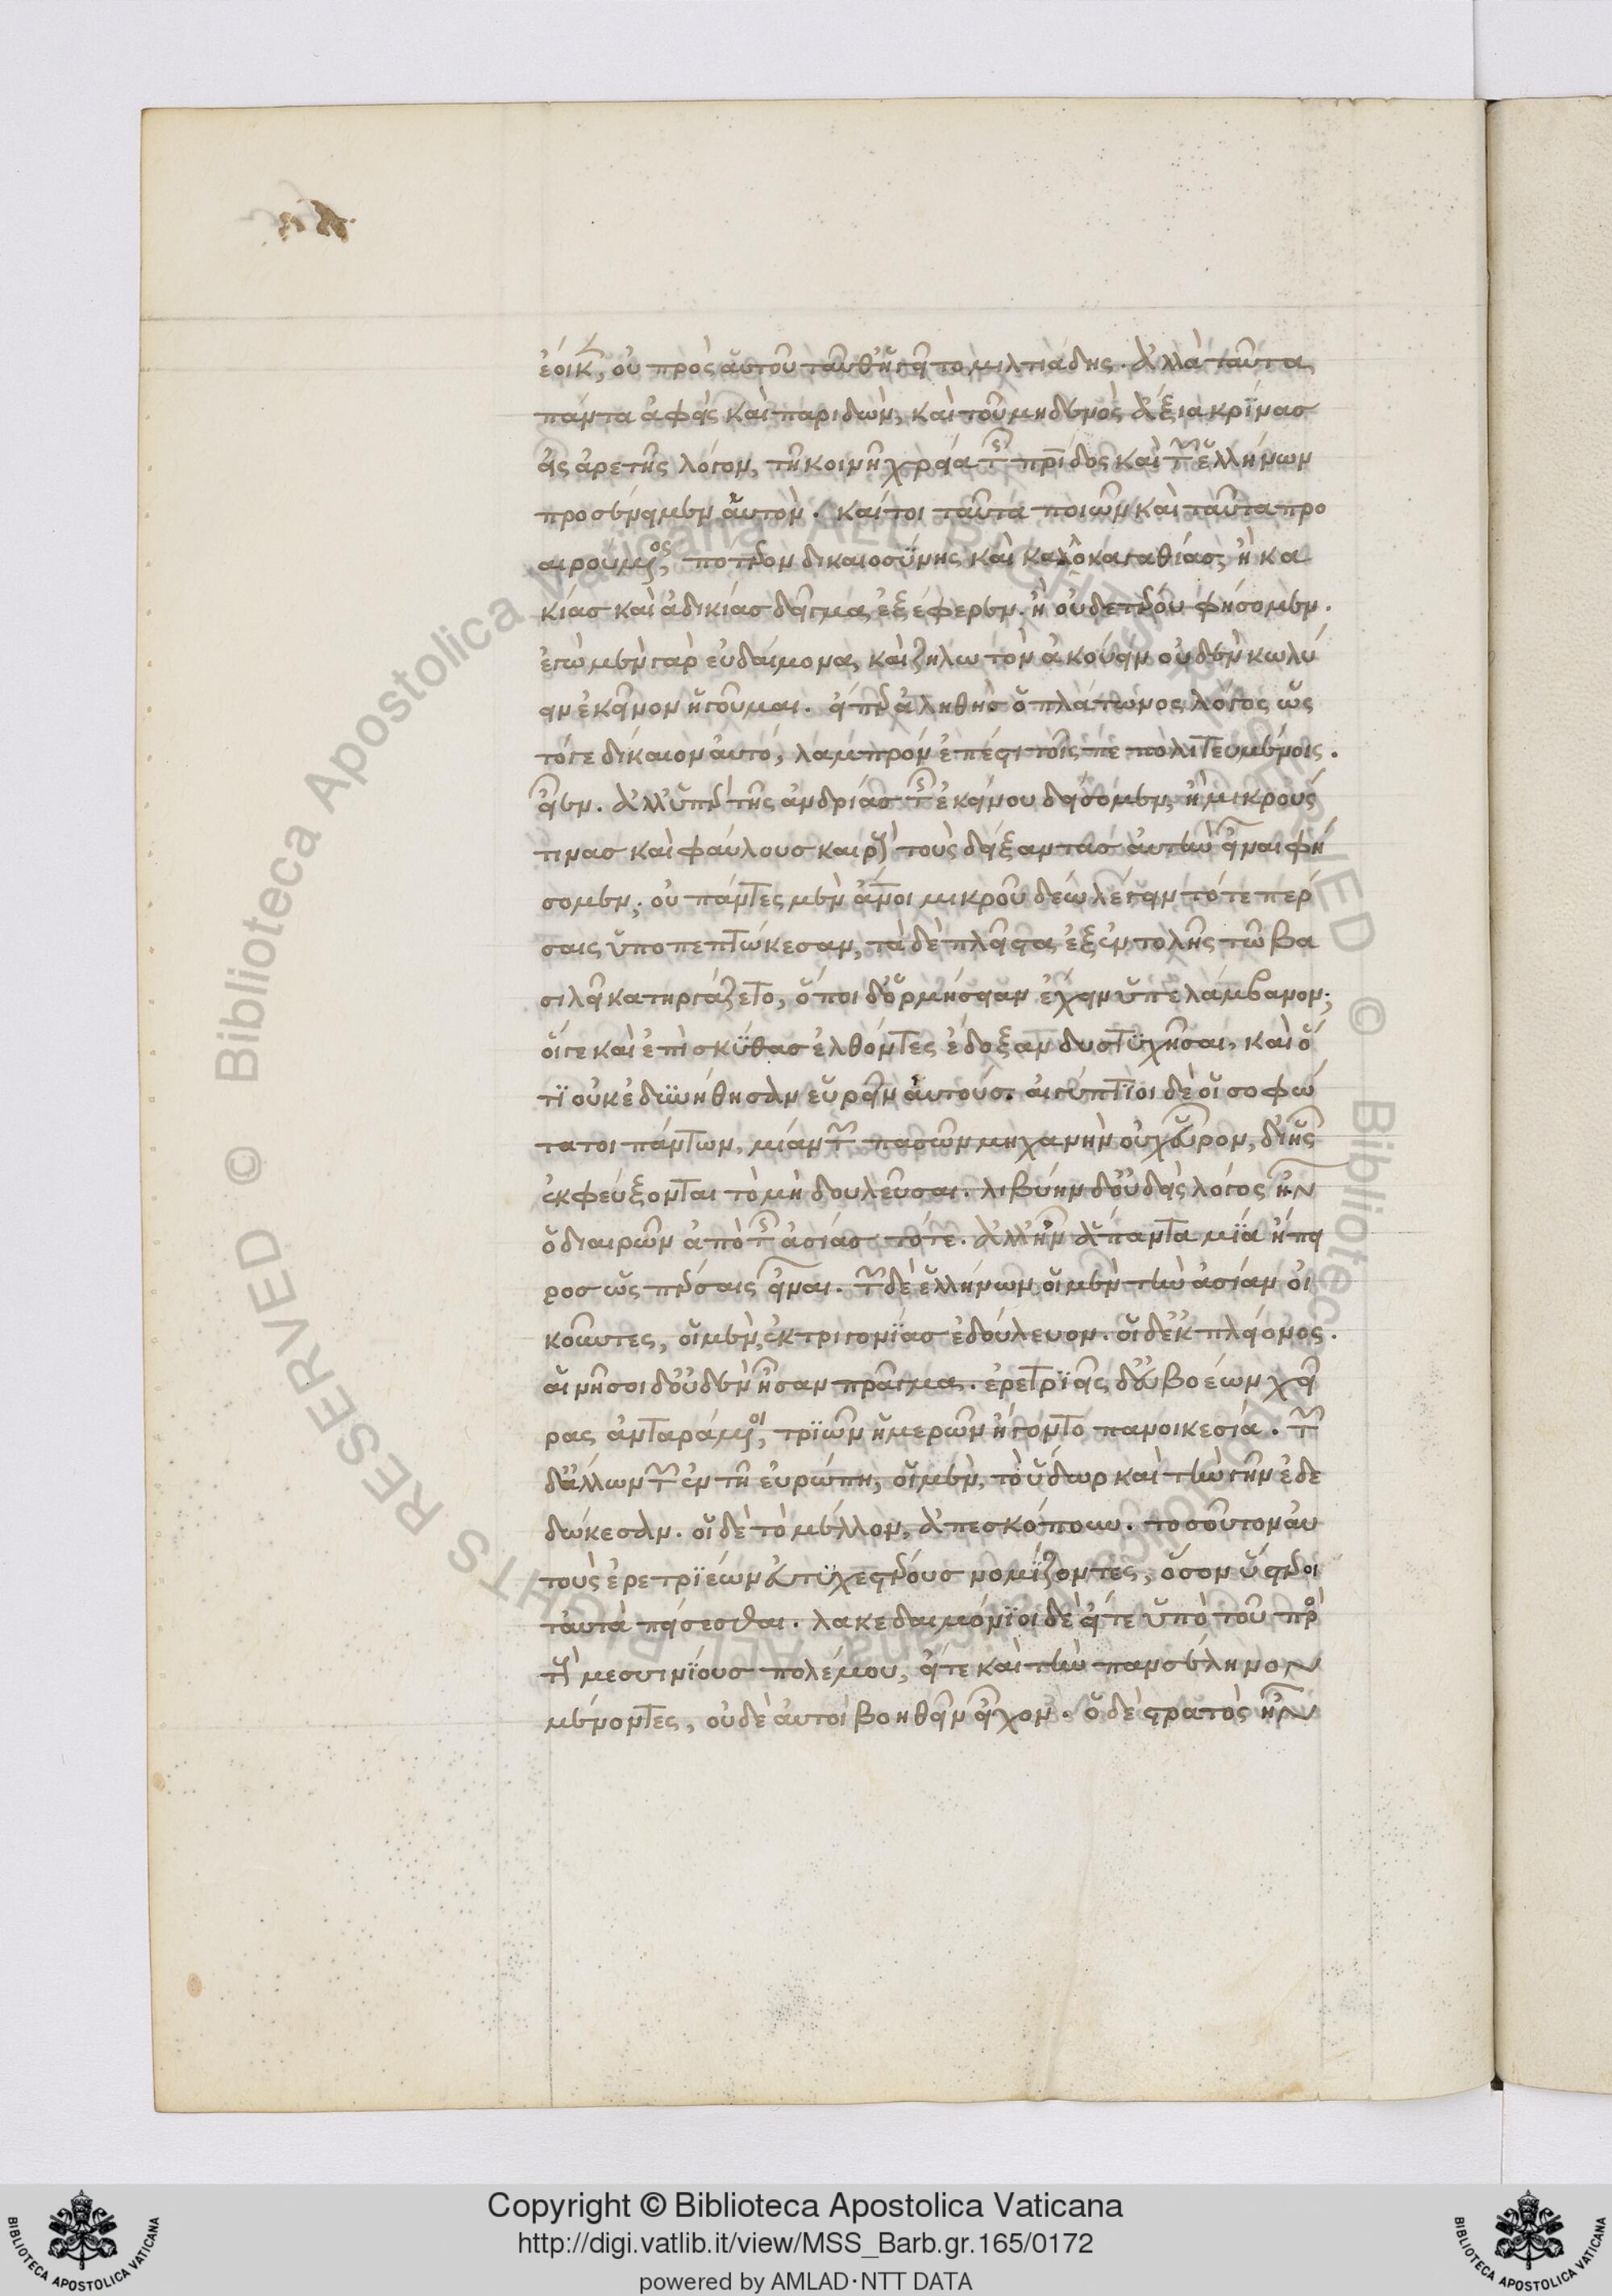 ἐοικεν, οὐ πρὸς αὐτοῦ ταῦθ' ἡγεῖτο μιλτιάδης. ἀλλὰ ταῦτα
πάντα ἀφεὶς καὶ παριδὼν, καὶ τοῦ μηδενὸς ἄξια κρίνας
εἰς ἀρετῆς λόγον, τῇ κοινῇ χρείᾳ τῆς πρίδος καὶ τῶν ἑλλήνων
προσένειμεν αὑτὸν. καίτοι ταῦτα ποιῶν καὶ ταῦτα προ
αιρούμενος, πότερον δικαιοσύνης καὶ καλοκαγαθίας, ἢ κα
κίας καὶ ἀδικίας δεῖγμα, ἐξέφερεν. ἢ οὐδετέρου φήσομεν.
ἐγὼ μὲν γὰρ εὐδαίμονα, καὶ ζηλωτὸν ἀκούειν οὐδὲν κωλύ
ειν ἐκεῖνον ἡγοῦμαι. εἴπερ ἀληθὴς ὁ πλάτωνος λόγος ὡς
τόγε δίκαιον αὐτό, λαμπρόν ἐπέστι τοῖς πεπολιτευμένοις.
εἶεν. ἀλλ' ὑπὲρ τῆς ἀνδρίας τῆς ἐκείνου δείσομεν, ἢ μικρούς
τινας καὶ φαύλους καιροὺς τοὺς δείξαντας αὐτὴν εἶναι φή
σομεν; οὐ πάντες μὲν ἄνοι μικροῦ δέω λέγειν τότε πέρ
σαις ὑποπεπτώκεσαν, τὰ δὲ πλεῖστα, ἐξ ἐντολῆς τῷ βα
σιλεῖ κατηργάζετο, ὅποι δ' ὁρμήσειαν ἔχειν ὑπελάμβανον;
οἵγε καὶ ἐπὶ σκύθας ἐλθόντες ἔδοξαν δυστυχῆσαι, καὶ ὅ
τι οὐκ ἐδυνήθησαν εὑρεῖν αὐτούς. αἰγύπτιοι δὲ οἱ σοφώ
τατοι πάντων, μίαν τῶν πασῶν μηχανὴν οὐχ εὗρον, δι' ἧς
ἐκφεύξονται τὸ μὴ δουλεῦσαι. λιβύην δ' οὐδεὶς λόγος ἦν
ὁ διαιρῶν ἀπὸ τῆς ἀσίας τότε. ἀλλ' ἦν ἅπαντα μία ἤπει
ρος ὡς πέρσαις εἶναι. τῶν δὲ ἑλλήνων, οἱ μὲν τὴν ἀσίαν οἰ
κοῦντες, οἱ μὲν, ἐκ τριγονίας ἐδούλευον. οἱ δ' ἐκ πλείονος.
αἱ νῆσοι δ' οὐδὲν ἦσαν πρᾶγμα. ἐρετριεῖς, δ' εὐβοέων χεῖ
ρας ἀνταράμενοι, τριῶν ἡμερῶν ἤγοντο πανοικεσία. τῶν
δ' ἄλλων τῶν ἐν τῇ εὐρώπῃ, οἱ μὲν, τὸ ὕδωρ καὶ τὴν γῆν ἐδε
δώκεσαν. οἱ δὲ τὸ μέλλον, ἀπεσκόπουν. τοσοῦτον αὑ
τοὺς ἐρετριέων εὐτυχεστέρους νομίζοντες, ὅσον ὕστεροι
ταὐτὰ πείσεσθαι. λακεδαιμόνιοι δὲ εἴτε ὑπὸ τοῦ πρὸς
τοὺς μεσσηνίους πολέμου, εἴτε καὶ τὴν πανσέληνον
μένοντες, οὐδὲ αὐτοὶ βοηθεῖν εἶχον. ὁ δὲ στρατὸς ἦν
Copyright © Biblioteca Apostolica Vaticana
http://digi.vatlib.it/view/MSS_Barb.gr.165/0172
powered by AMLAD·NTT DATA